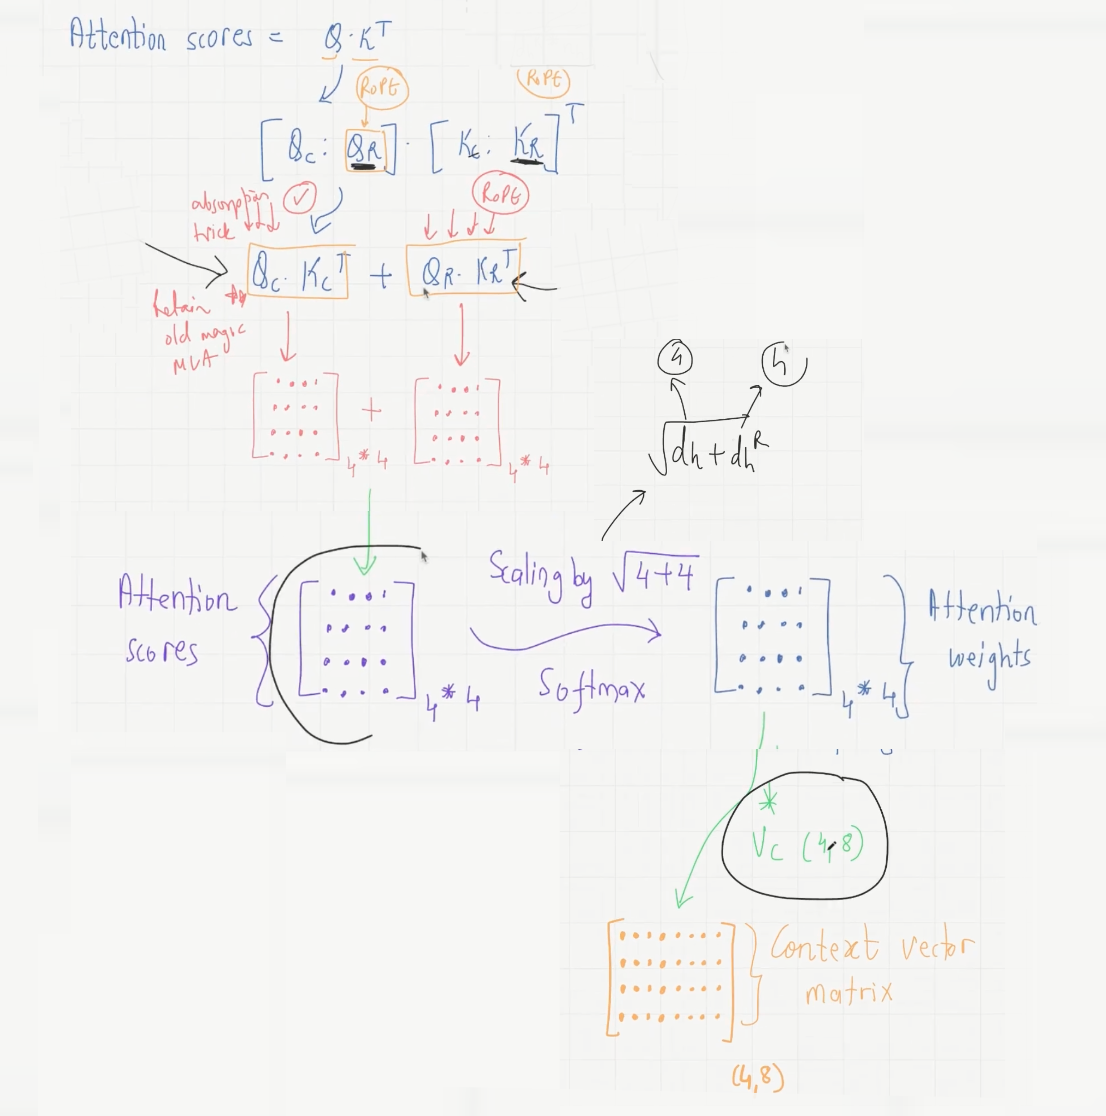 Attention scores = Q·Kᵀ
RoPE
RoPE
[Qc : QR] · [Kc : KR]ᵀ
absorption
trick
✓
RoPE
Qc · Kcᵀ + QR · KRᵀ
Retain
old magic
MLA
+
4*4
4*4
4
4
√dh + dhᴿ
Attention
scores
4*4
Scaling by √4+4
Softmax
4*4
Attention
weights
*
Vc (4,8)
Context vector
matrix
(4,8)